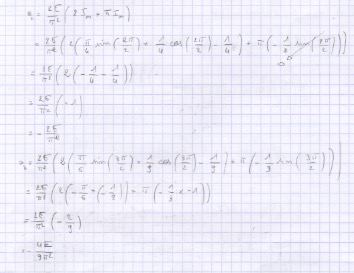 a₂ = 2E/π² (2 Iₘ + π Iₙ)
= 2E/π² (2(π/4 sin(2π/2) + 1/4 cos(2π/2) - 1/4) + π(-1/2 sin(2π/2)))
0
= 2E/π² (2(-1/4 - 1/4))
= 2E/π² (-1)
= - 2E/π²
= 2E/π² (2(π/6 sin(3π/2) + 1/9 cos(3π/2) - 1/9) + π(-1/3 sin(3π/2)))
= 2E/π² (2(-π/6 + (-1/9)) + π(-1/3 × -1))
= 2E/π² (-2/9)
= - 4E/9π²